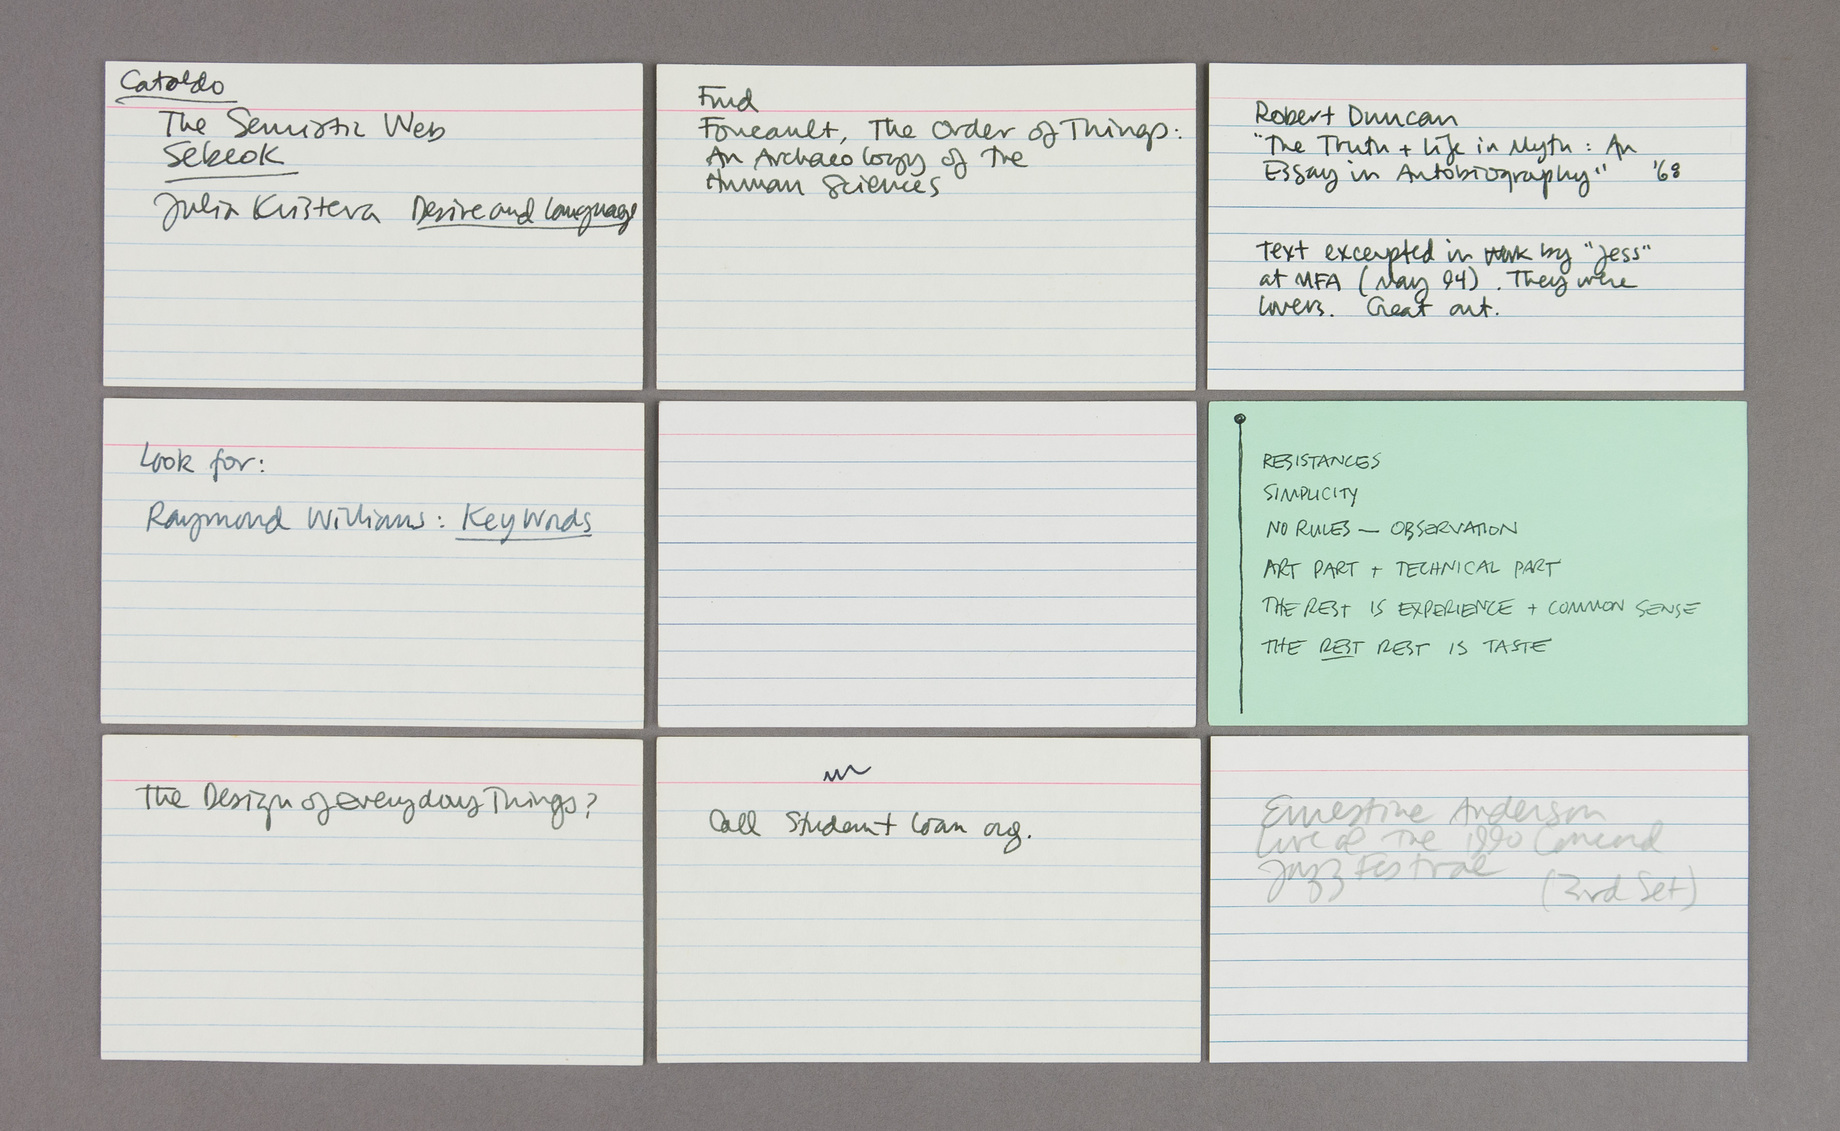 Cataldo
The Semiotic Web
Sebeok
Julia Kristeva Desire and Language
Find
Foucault, The Order of Things:
An Archaeology of the
Human Sciences
Robert Duncan
"The Truth + Life in Myth: An
Essay in Autobiography" '68
Text excerpted in work by "Jess"
at MFA (May 94). They were
lovers. Great art.
Look for:
Raymond Williams: Keywords
RESISTANCES
SIMPLICITY
NO RULES — OBSERVATION
ART PART + TECHNICAL PART
THE REST IS EXPERIENCE + COMMON SENSE
THE REST REST IS TASTE
The Design of everyday Things?
Call Student loan org.
Ernestine Anderson
Live at the 1990 Concord
Jazz Festival
(3rd Set)